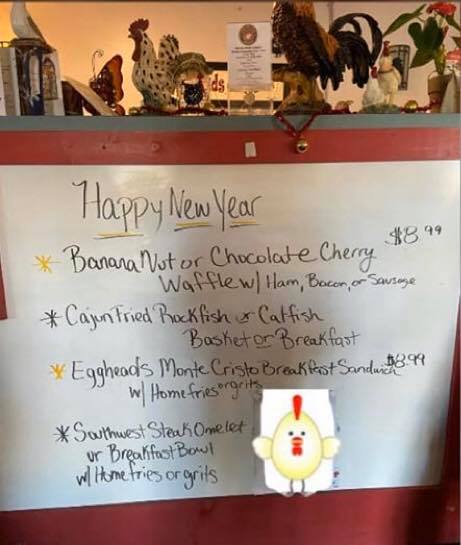 Happy New Year
$8.99
* Banana Nut or Chocolate Cherry
Waffle w/ Ham, Bacon, or Sausage
* Cajun Fried Rockfish or Catfish
Basket or Breakfast
* Eggheads Monte Cristo Breakfast Sandwich $8.99
w/ Homefries or grits
* Southwest Steak Omelet
or Breakfast Bowl
w/ Homefries or grits